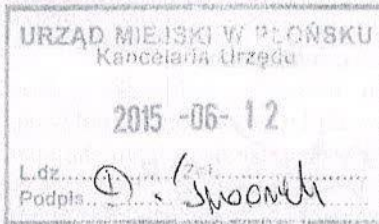 URZĄD MIEJSKI W PŁOŃSKU
Kancelaria Urzędu
2015 -06- 12
L.dz. Zał.
Podpis